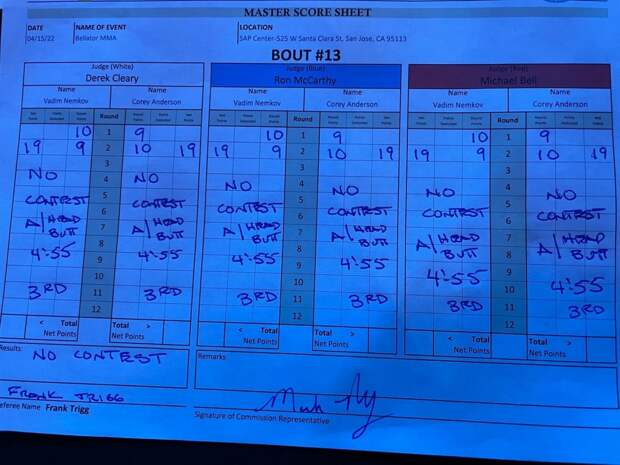 MASTER SCORE SHEET
DATE NAME OF EVENT LOCATION
04/15/22 Bellator MMA SAP Center-525 W Santa Clara St, San Jose, CA 95113
BOUT #13
Judge (White) Judge (Blue) Judge (Pink)
Derek Cleary Ron McCarthy Michael Bell
Name Name Name Name Name Name
Vadim Nemkov Corey Anderson Vadim Nemkov Corey Anderson Vadim Nemkov Corey Anderson
Round Round Round
10 1 9 10 1 9 10 1 9
19 9 2 10 19 19 9 2 10 19 19 9 2 10 19
3 3 3
NO 4 NO NO 4 NO NO 4 NO
CONTEST 5 CONTEST CONTEST 5 CONTEST CONTEST 5 CONTEST
A/HEAD 6 A/HEAD A/HEAD 6 A/HEAD A/HEAD 6 A/HEAD
BUTT 7 BUTT BUTT 7 BUTT BUTT 7 BUTT
8 8 8
4:55 9 4:55 4:55 9 4:55 4:55 9 4:55
10 10 10
3RD 11 3RD 3RD 11 3RD 3RD 11 3RD
12 12 12
< Total Total > < Total Total > < Total Total >
Net Points Net Points Net Points Net Points Net Points Net Points
Results: NO CONTEST
Remarks:
FRANK TRIGG
Referee Name Frank Trigg
Signature of Commission Representative